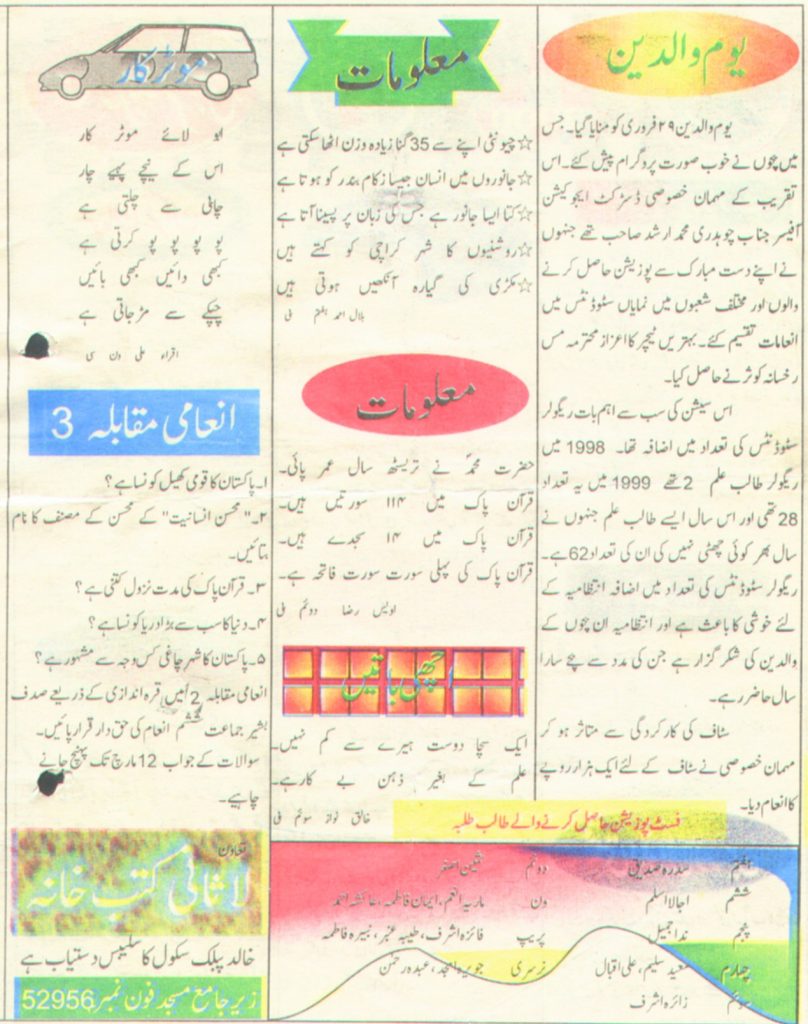 یوم والدین
یوم والدین ۲۹ فروری کو منایا گیا۔ جس
میں بچوں نے خوب صورت پروگرام پیش کئے۔ اس
تقریب کے مہمان خصوصی ڈسٹرکٹ ایجوکیشن
آفیسر جناب چوہدری محمد ارشد صاحب تھے جنہوں
نے اپنے دست مبارک سے پوزیشن حاصل کرنے
والوں اور مختلف شعبوں میں نمایاں سٹوڈنٹس میں
انعامات تقسیم کئے۔ بہترین ٹیچر کا اعزاز محترمہ مس
رخسانہ کوثر نے حاصل کیا۔
اس سیشن کی سب سے اہم بات ریگولر
سٹوڈنٹس کی تعداد میں اضافہ تھا۔ 1998 میں
ریگولر طالب علم 2 تھے 1999 میں یہ تعداد
28 تھی اور اس سال ایسے طالب علم جنہوں نے
سال بھر کوئی چھٹی نہیں کی ان کی تعداد 62 ہے۔
ریگولر سٹوڈنٹس کی تعداد میں اضافہ انتظامیہ کے
لئے خوشی کا باعث ہے اور انتظامیہ ان بچوں کے
والدین کی شکر گزار ہے جن کی مدد سے بچے سارا
سال حاضر رہے۔
سٹاف کی کارکردگی سے متاثر ہو کر
مہمان خصوصی نے سٹاف کے لئے ایک ہزار روپے
کا انعام دیا۔
معلومات
☆چیونٹی اپنے سے 35 گنا زیادہ وزن اٹھا سکتی ہے
☆جانوروں میں انسان جیسا زکام بندر کو ہوتا ہے
☆کتا ایسا جانور ہے جس کی زبان پر پسینا آتا ہے
☆روشنیوں کا شہر کراچی کو کہتے ہیں
☆مکڑی کی گیارہ آنکھیں ہوتی ہیں
بلال احمد ہفتم بی
معلومات
حضرت محمدؐ نے تریسٹھ سال عمر پائی۔
قرآن پاک میں ۱۱۴ سورتیں ہیں۔
قرآن پاک میں ۱۴ سجدے ہیں۔
قرآن پاک کی پہلی سورت سورت فاتحہ ہے۔
اویس رضا دوئم بی
اچھی باتیں
ایک سچا دوست ہیرے سے کم نہیں۔
علم کے بغیر ذہن بے کار ہے۔
خالق نواز سوئم بی
موٹر کار
ابو لائے موٹر کار
اس کے نیچے پہیے چار
چابی سے چلتی ہے
پو پو پو پو کرتی ہے
کبھی دائیں کبھی بائیں
چپکے سے مڑ جاتی ہے
اقراء علی ون سی
انعامی مقابلہ 3
۱۔ پاکستان کا قومی کھیل کونسا ہے؟
۲۔ "محسن انسانیت" کے محسن کے مصنف کا نام
بتائیں۔
۳۔ قرآن پاک کی مدت نزول کتنی ہے؟
۴۔ دنیا کا سب سے بڑا دریا کونسا ہے؟
۵۔ پاکستان کا شہر چاغی کس وجہ سے مشہور ہے؟
انعامی مقابلہ 2 میں قرہ اندازی کے ذریعے صدف
بشیر جماعت ششم انعام کی حق دار قرار پائیں۔
سوالات کے جواب 12 مارچ تک پہنچ جانے
چاہیے۔
تعاون
لاثانی کتب خانہ
خالد پبلک سکول کا سلیبس دستیاب ہے
زیر جامع مسجد فون نمبر 52956
فسٹ پوزیشن حاصل کرنے والے طالب طلبہ
ہفتم سدرہ صدیقی دوئم ثمین اصغر
ششم اجالا اسلم ون ماریہ انعم، ایمان فاطمہ، عائشہ احمد
پنجم ندا جمیل پریپ فائزہ اشرف، طیبہ عنبر، نمیرہ فاطمہ
چہارم معید سلیم، علی اقبال نرسری جویریہ امجد، عبدہ رحمن
سوئم زائرہ اشرف